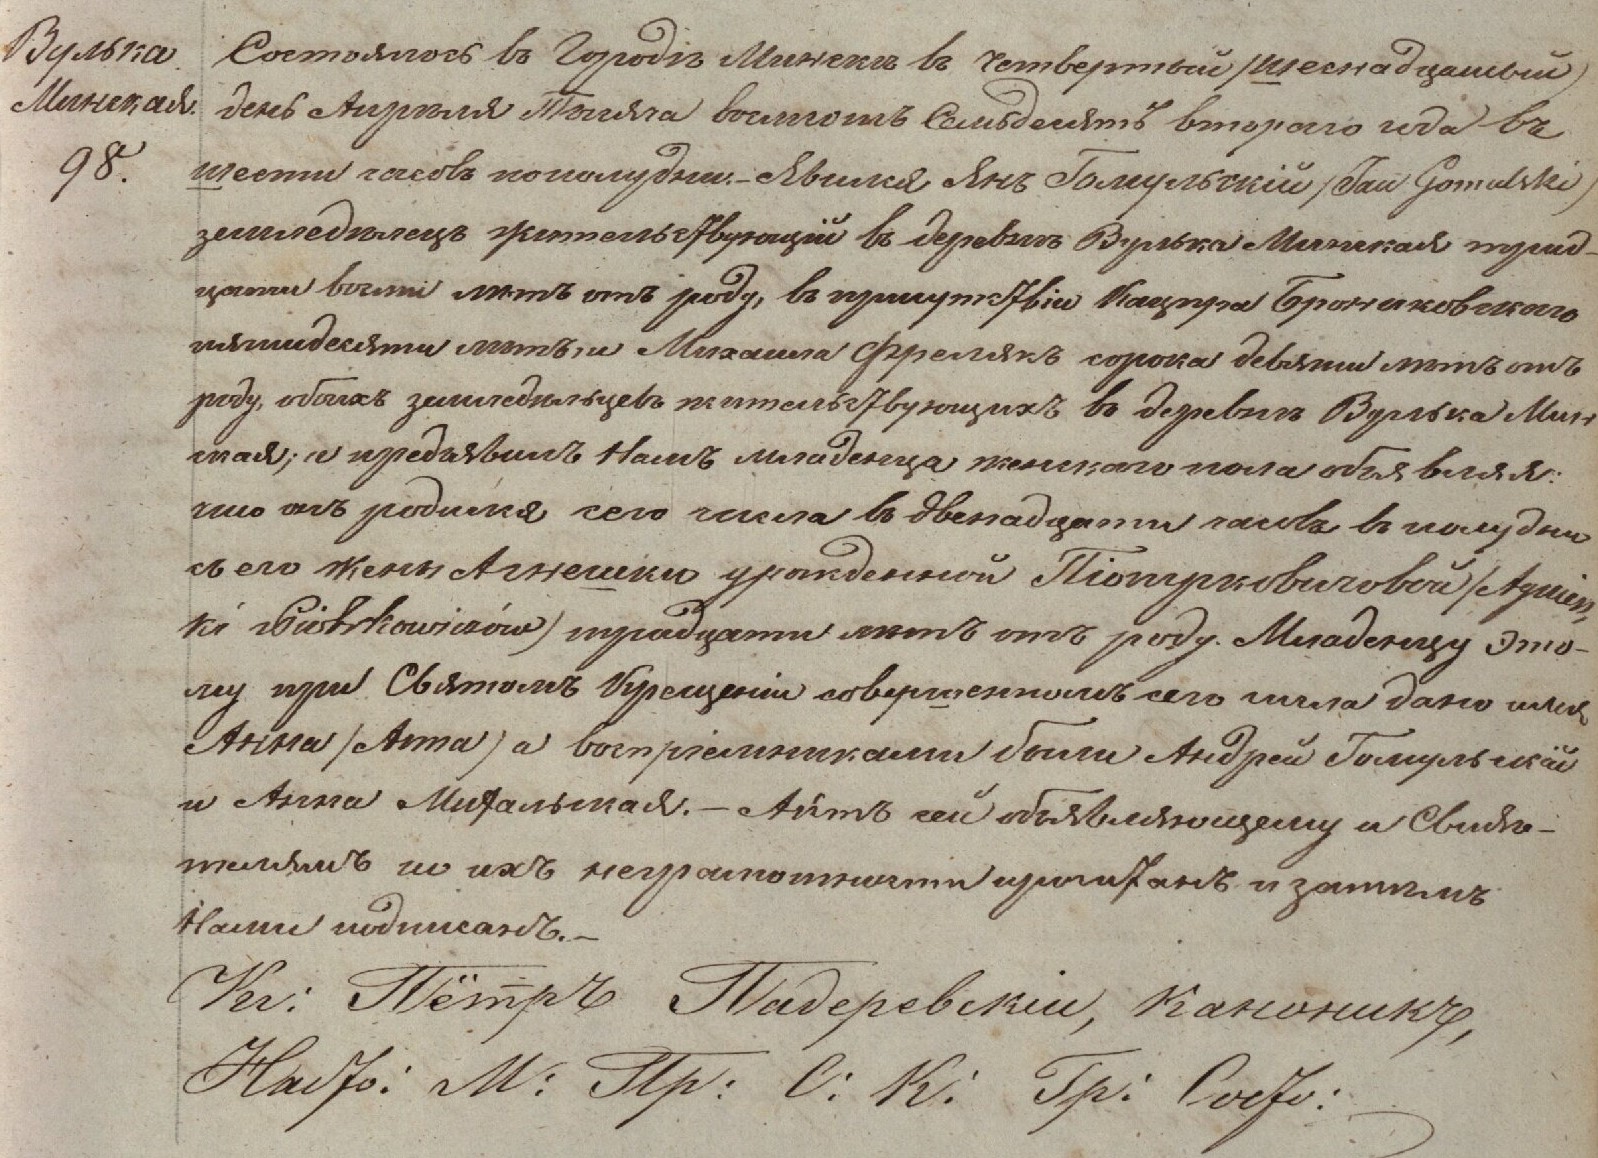 Вулька
Минская.
98.
Состоялось въ Городѣ Минскѣ въ четвертый (шеснадцатый)
день Апрѣля Тысяча восемсотъ Семьдесятъ втораго года въ
шести часовъ пополудни. – Явился Янъ Гомульскій (Jan Gomulski)
земледѣлецъ жительствующій въ деревнѣ Вулька Минская трид-
цати восми лѣтъ отъ роду, въ присутствіи Кацпра Брониковскаго
пятидесяти лѣтъ и Михаила Фрелякъ сорока девяти лѣтъ отъ
роду, обоихъ земледѣльцевъ жительствующихъ въ деревнѣ Вулька Мин
ская; и предъявилъ Намъ младенца женскаго пола объявляя:
что онъ родился сего числа въ двенадцати часовъ въ полудни
съ его жены Агнешки урожденной Піотрковичовой (Agniesz
ki Piotrkowiczów) тридцати лѣтъ отъ роду. Младенцу это-
му при Святомъ Крещеніи совершенномъ сего числа дано имя
Анна (Anna) а воспріемниками были Андрей Гомульскій
и Анна Михальская. – Актъ сей объявляющему и Свидѣ-
телямъ по ихъ неграмотности прочитанъ и затѣмъ
Нами подписанъ. –
Кс: Пётръ Падеревскій, Каноникъ,
Наст: М: Пр: С: К: Гр: Сост: